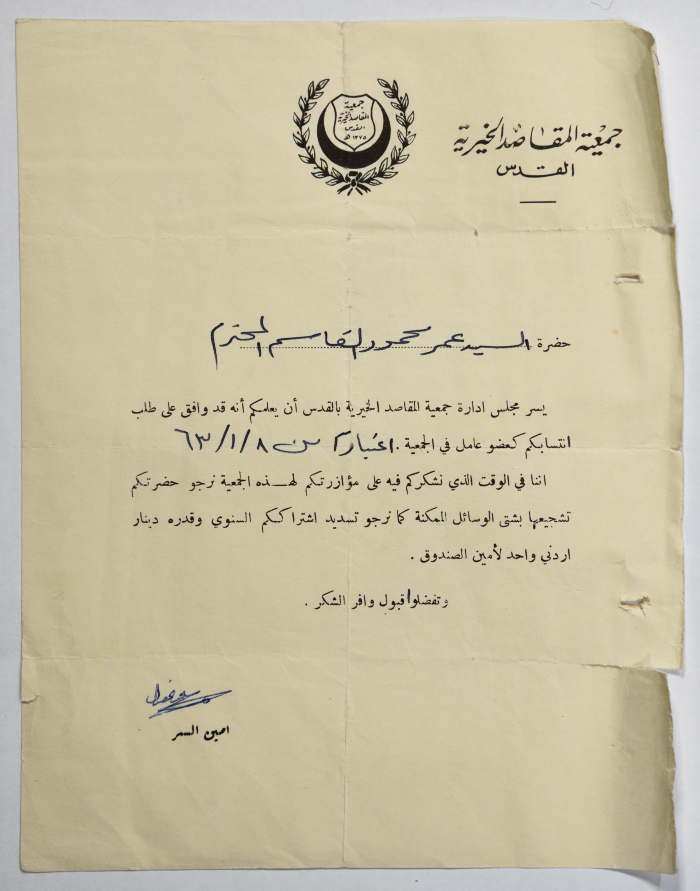 جمعية
المقاصد الخيرية
القدس
١٣٧٥ هـ
جمعية المقاصد الخيرية
القدس
حضرة السيد عمر محمود القاسم المحترم
يسر مجلس ادارة جمعية المقاصد الخيرية بالقدس أن يعلمكم أنه قد وافق على طلب
انتسابكم كعضو عامل في الجمعية . اعتباراً من ٦٣/١/٨
اننا في الوقت الذي نشكركم فيه على مؤازرتكم لهذه الجمعية نرجو حضرتكم
تشجيعها بشتى الوسائل الممكنة كما نرجو تسديد اشتراككم السنوي وقدره دينار
اردني واحد لأمين الصندوق .
وتفضلوا قبول وافر الشكر .
امين السر